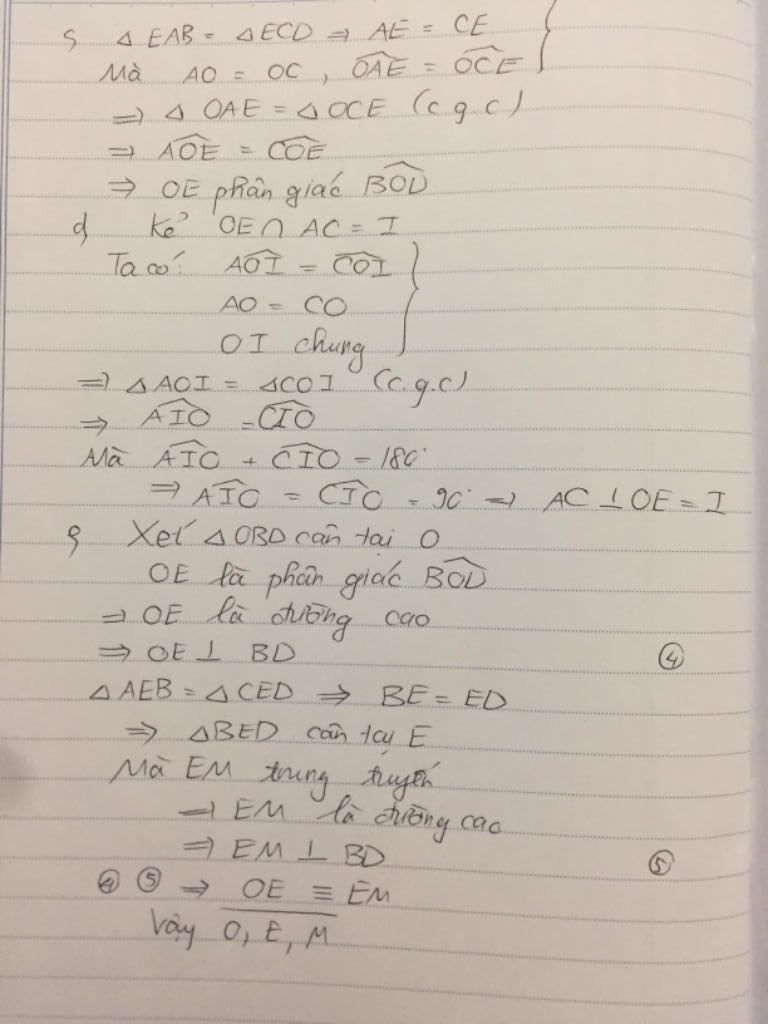 c) △EAB = △ECD ⇒ AE = CE
Mà AO = OC, \widehat{OAE} = \widehat{OCE}
⇒ △OAE = △OCE (c.g.c)
⇒ \widehat{AOE} = \widehat{COE}
⇒ OE phân giác \widehat{BOD}
d) Kẻ OE ∩ AC = I
Ta có: \widehat{AOI} = \widehat{COI}
AO = CO
OI chung
⇒ △AOI = △COI (c.g.c)
⇒ \widehat{AIO} = \widehat{CIO}
Mà \widehat{AIO} + \widehat{CIO} = 180°
⇒ \widehat{AIO} = \widehat{CIO} = 90° ⇒ AC ⊥ OE = I
e) Xét △OBD cân tại O
OE là phân giác \widehat{BOD}
⇒ OE là đường cao
⇒ OE ⊥ BD ④
△AEB = △CED ⇒ BE = ED
⇒ △BED cân tại E
Mà EM trung truyến
⇒ EM là đường cao
⇒ EM ⊥ BD ⑤
④ ⑤ ⇒ OE ≡ EM
Vậy \overline{O, E, M}